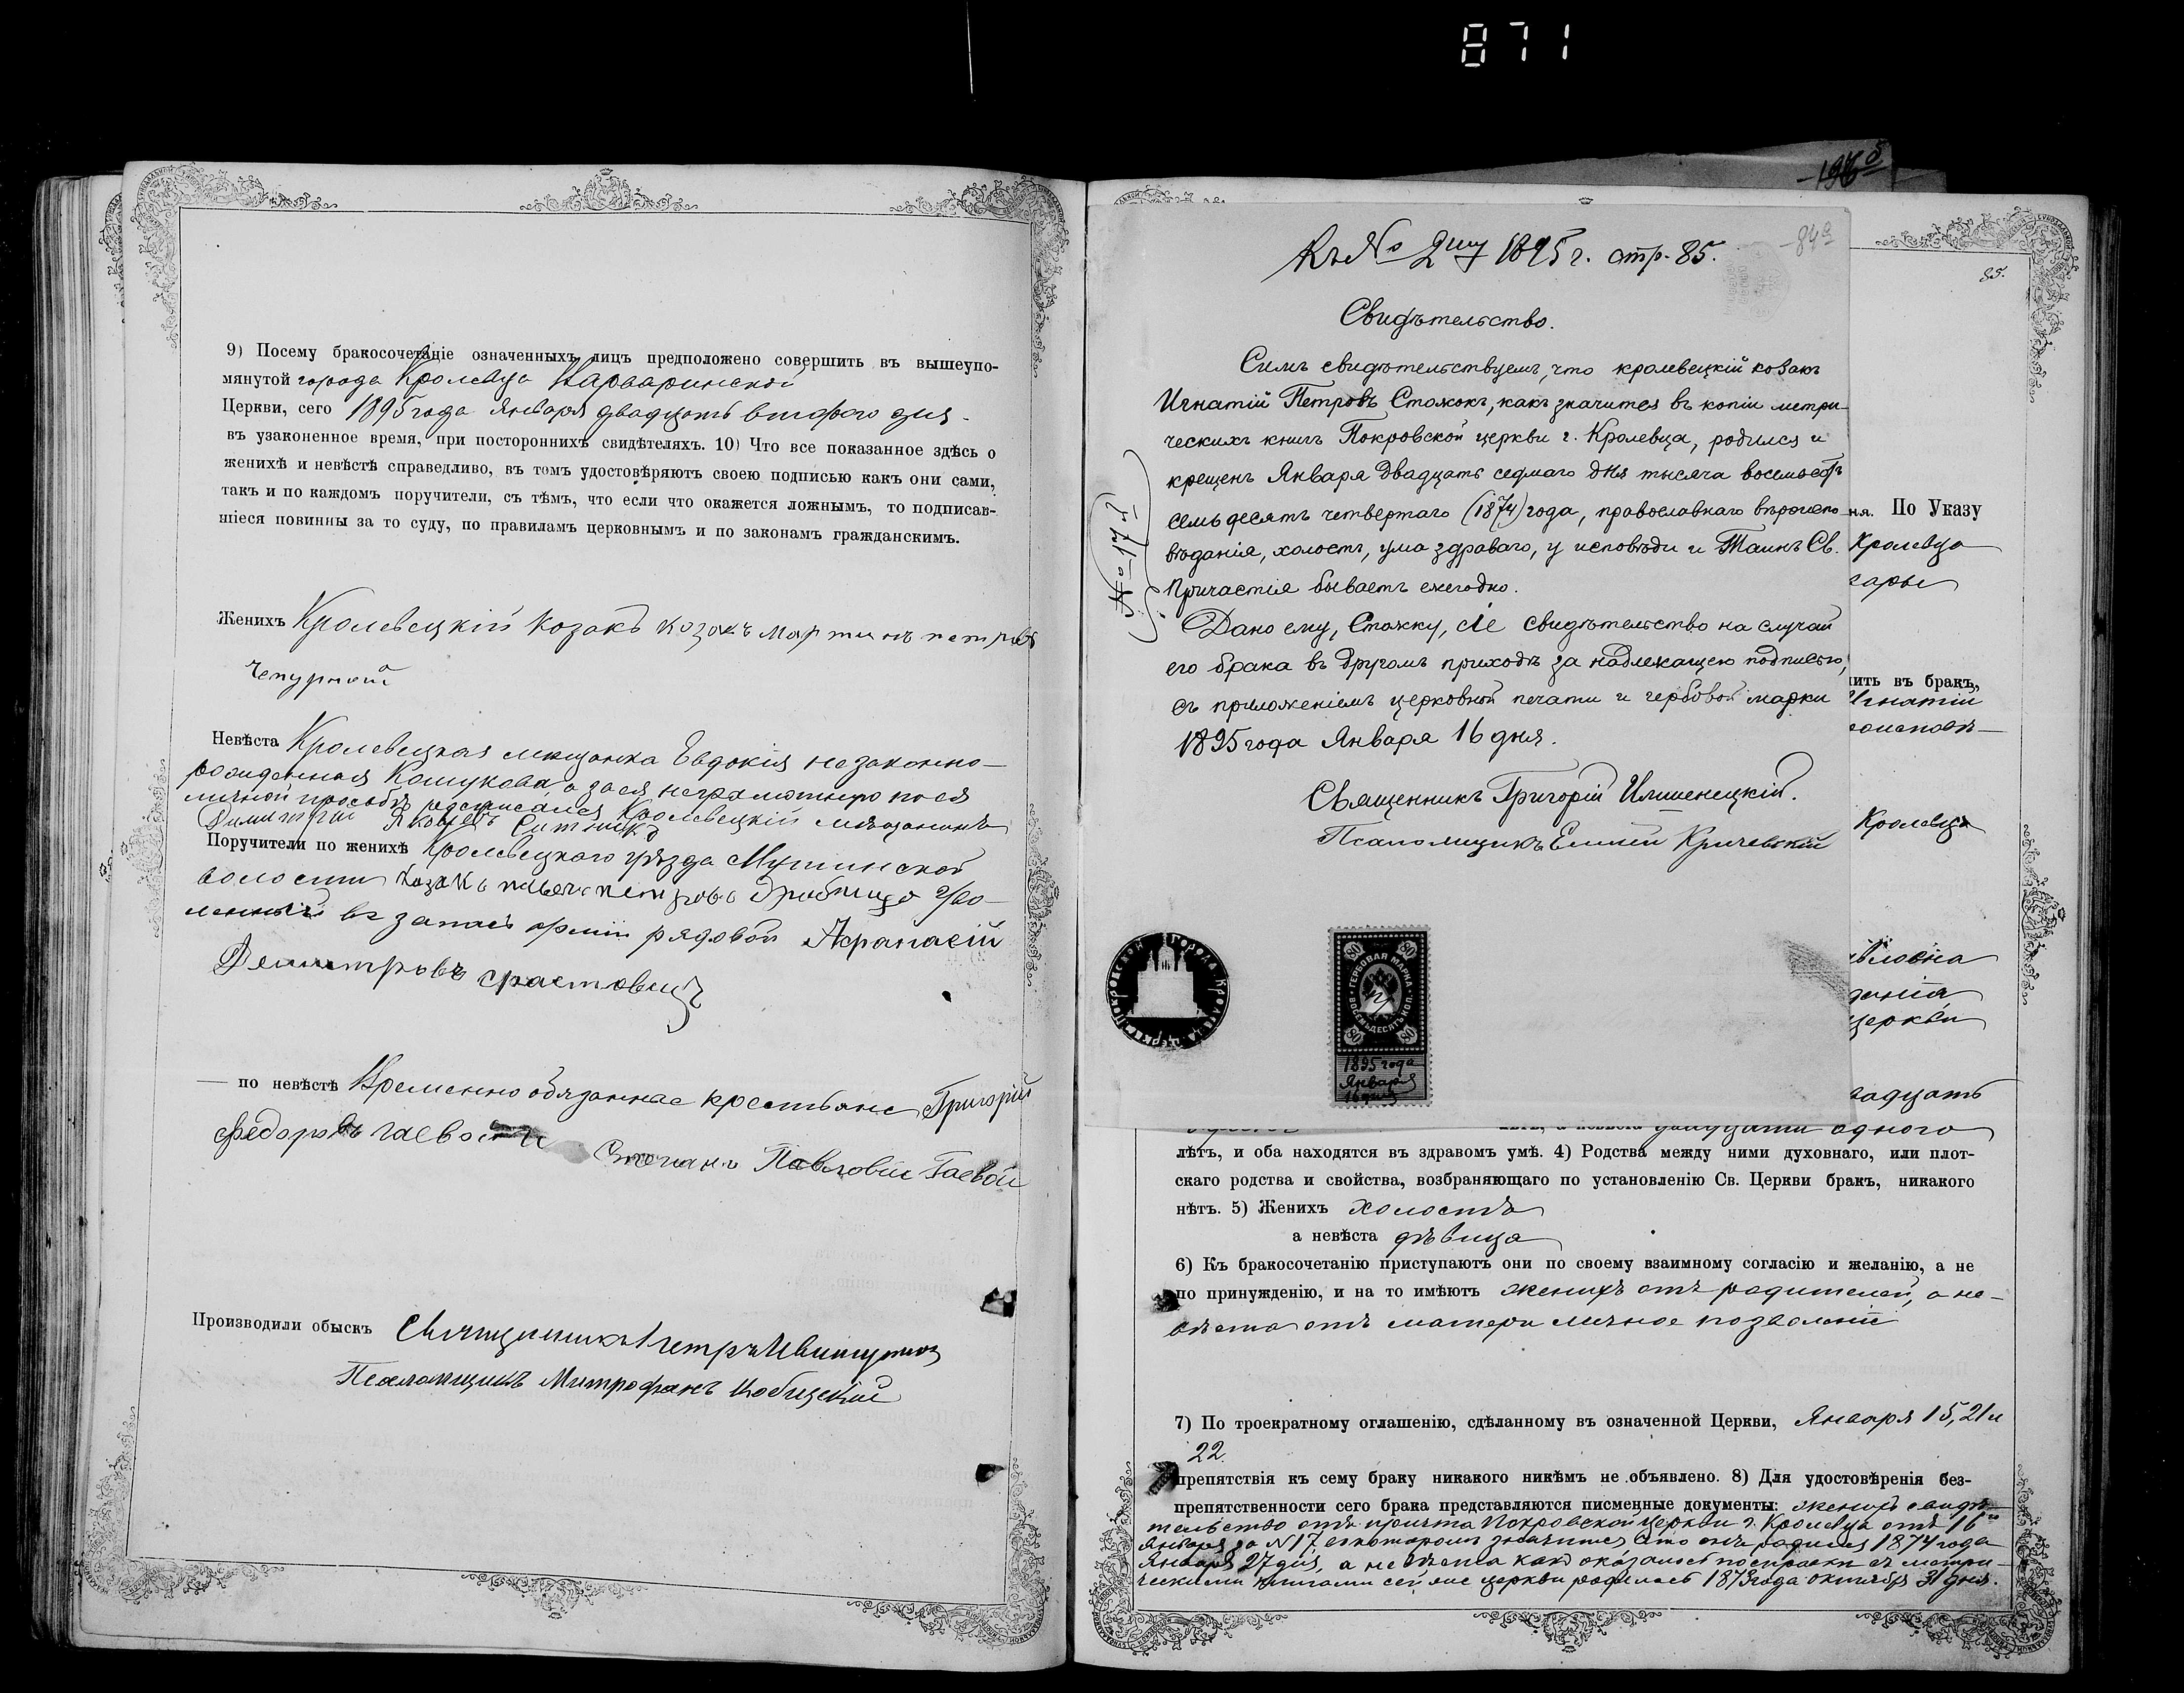 871
9) Посему бракосочетаніе означенныхъ лицъ предположено совершить въ вышеупо-
мянутой города Кролевца Варваринской
Церкви, сего 1895 года Января двадцать втораго дня
въ узаконенное время, при постороннихъ свидѣтеляхъ. 10) Что все показанное здѣсь о
женихѣ и невѣстѣ справедливо, въ томъ удостовѣряютъ своею подписью какъ они сами,
такъ и по каждомъ поручители, съ тѣмъ, что если что окажется ложнымъ, то подписав-
шіеся повинны за то суду, по правиламъ церковнымъ и по законамъ гражданскимъ.
Женихъ Кролевецкій козакъ козакъ мартинъ петровъ
Чепурной
Невѣста Кролевецкая мѣщанка Евдокія незаконно-
рожденная Кошукова, а за ея неграмотную по ея
личной просьбѣ росписался Кролевецкій мѣщанинъ
Димитрій Яковлевъ Ситника
Поручители по женихѣ Кролевецкаго уѣзда Мутинской
волости козакъ петровъ уво-
ленный въ запасъ арміи рядовой Афанасій
Демитровъ
— по невѣстѣ Временно обязанные крестьяне Григорій
Федоровъ гаевой Степанъ Павловій Гаевой
Производили обыскъ Священникъ Петръ
Псаломщикъ Митрофанъ Кобицскій
-196 б
Къ № 2му 1895 г. стр. 85.
-84а
Свидѣтельство.
Симъ свидѣтельствуемъ, что кролевецкій козакъ
Игнатій Петровъ Стожокъ, какъ значится въ копіи метри-
ческихъ книгъ Покровской церкви г. Кролевца, родился и
крещенъ Января двадцать седмаго дня тысяча восемьсотъ
семьдесятъ четвертаго (1874) года, православнаго вѣроиспо-
вѣданія, холостъ, ума здраваго, у исповѣди и Таинъ Св.
Причастія бываетъ ежегодно.
Дано ему, Стожку, сіе свидѣтельство на случай
его брака въ другомъ приходѣ за надлежащею подписью,
съ приложеніемъ церковной печати и гербовой марки
1895 года Января 16 дня.
№ 17й
Священникъ Григорій Илшенецкій.
Псаломщикъ Емилій Кричевскій
Покровской города Кролевца церкви
80 80
ГЕРБОВАЯ МАРКА
ВОСЕМЬДЕСЯТЪ КОП.
80 80
1895 года
Января
16 дня
85.
ня. По Указу
Кролевца
ары
ить въ бракъ,
Игнатій
оисповѣ-
Кролевца
вловна
данія
церкви
вадцать
лѣтъ, а невѣста двадцати одного
лѣтъ, и оба находятся въ здравомъ умѣ. 4) Родства между ними духовнаго, или плот-
скаго родства и свойства, возбраняющаго по установленію Св. Церкви бракъ, никакого
нѣтъ. 5) Женихъ холостъ
а невѣста дѣвица
6) Къ бракосочетанію приступаютъ они по своему взаимному согласію и желанію, а не
по принужденію, и на то имѣютъ женихъ отъ родителей, а не-
вѣста отъ матери личное позволеніе
7) По троекратному оглашенію, сдѣланному въ означенной Церкви, Января 15, 21 и
22
препятствія къ сему браку никакого никѣмъ не объявлено. 8) Для удостовѣренія без-
препятственности сего брака представляются писменные документы: женихъ свидѣ-
тельство отъ причта Покровской церкви г. Кролевца отъ 16го
Января за №17 въ которомъ значится что онъ родился 1874 года
Января 27 дня, а невѣста какъ оказалось по справки съ метри-
ческими книгами сей же церкви родилась 1873 года октября 31 дня.